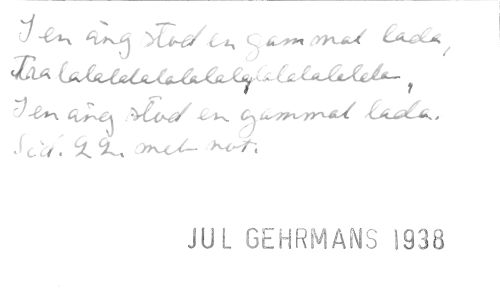 I en äng stod en gammal lada,
Tra lalalalalalalalalalalalala,
I en äng stod en gammal lada.
Sid. 22. med not.
JUL GEHRMANS 1938